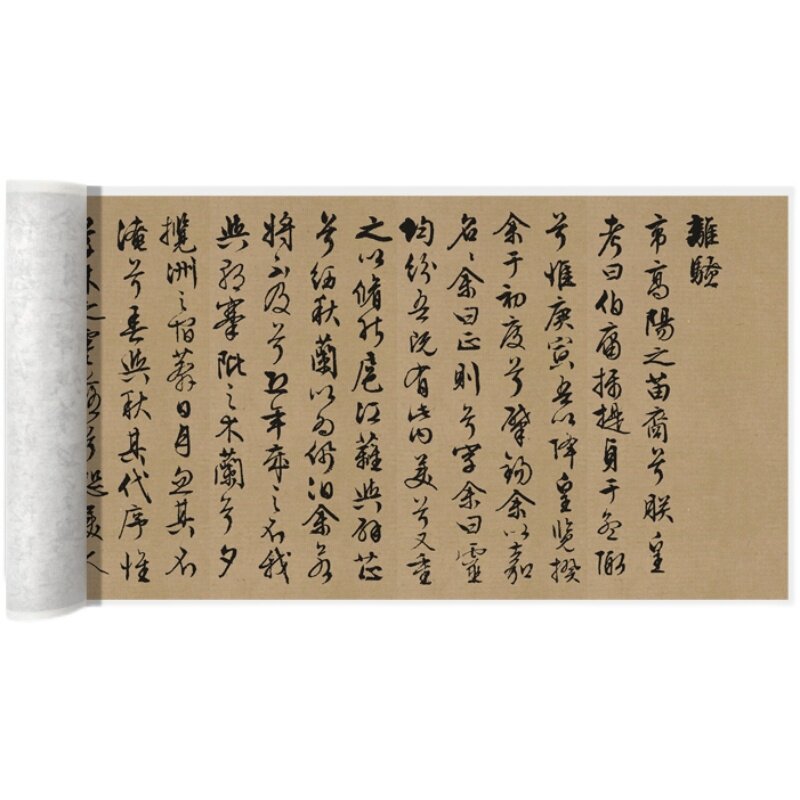 離騷
帝高陽之苗裔兮朕皇
考曰伯庸攝提貞于孟陬
兮惟庚寅吾以降皇覽揆
余于初度兮肇錫余以嘉
名〻余曰正則兮字余曰靈
均紛吾既有此內美兮又重
之以脩能扈江蘺與辟芷
兮紉秋蘭以為佩汩余若
將不及兮恐年歲之不我
與朝搴阰之木蘭兮夕
攬洲之宿莽日月忽其不
淹兮春與秋其代序惟
草木之零落兮恐美人